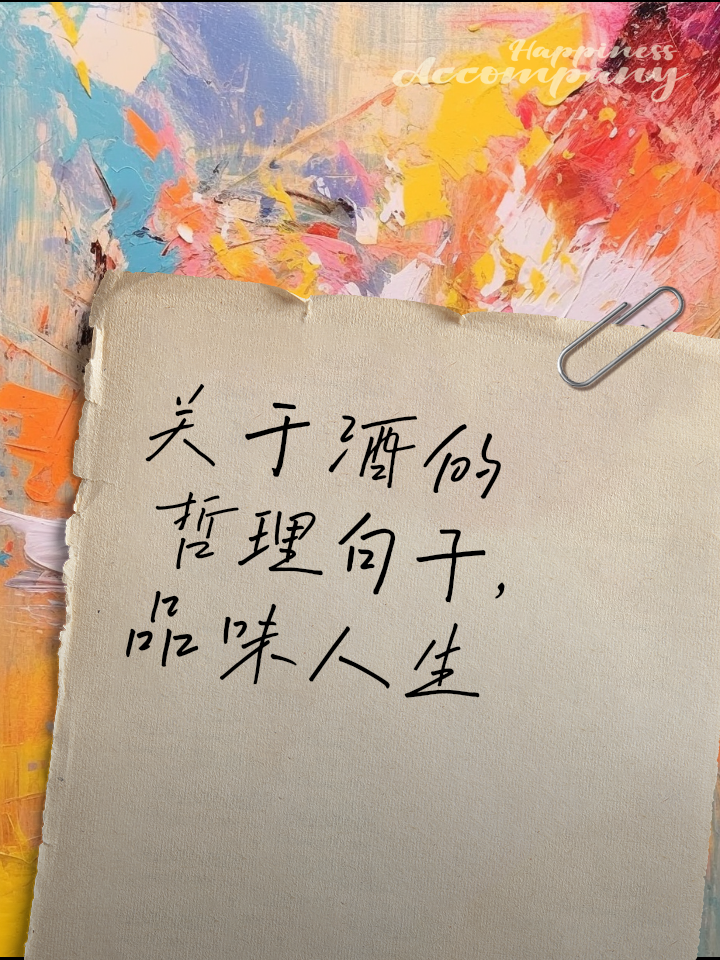 Happiness
Accompany
关于酒的
哲理句子,
品味人生